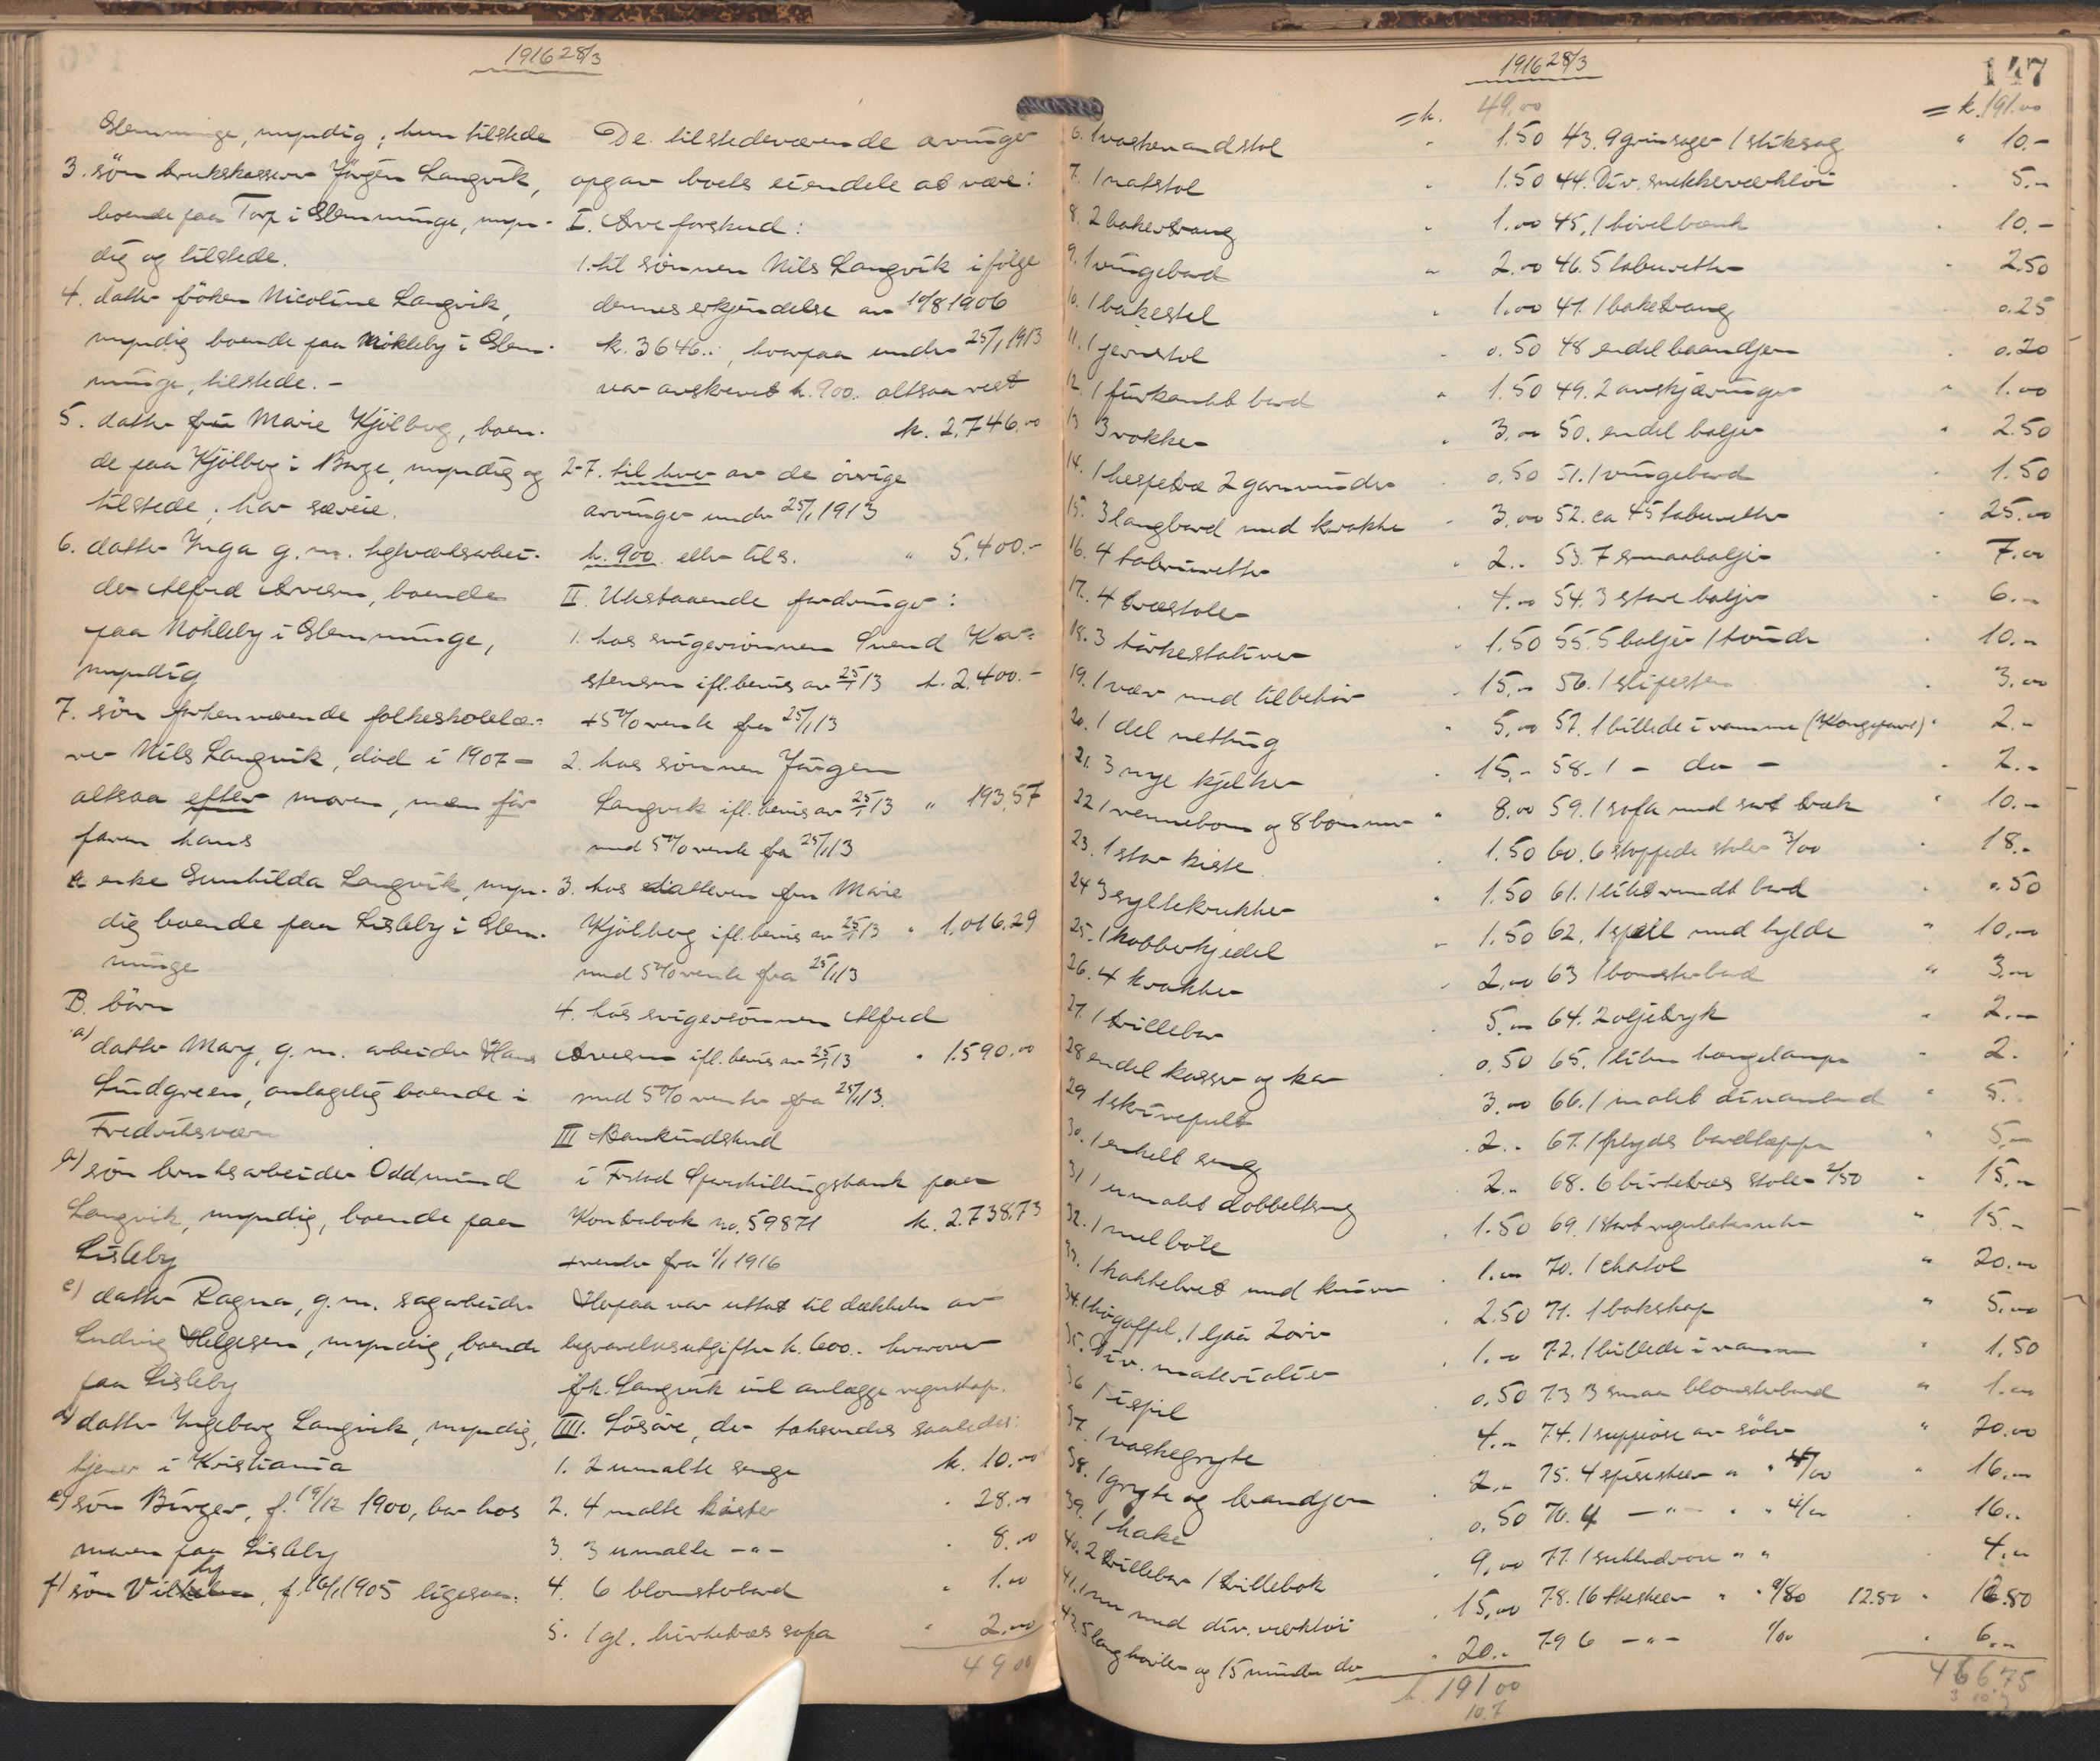 1916 28/3
Glemminge, myndig; hun tilstede
3. søn brukskasserer Jörgen Langvik,
boende paa Torp i Glemminge, myn-
dig og tilstede.
4. datter fröken Nicoline Langvik,
myndig boende paa Mökleby i Glem-
minge, tilstede. -
5. datter fru Marie Kjölberg, boen-
de paa Kjölberg i Borge, myndig og
tilstede; har særeie.
6. datter Inga g.m.
der Alfred Arvesen, boende
paa Mökleby i Glemminge,
myndig
7. sön forhenværende folkeskolelæ-
rer Nils Langvik, död i 1907 -
altsaa efter moren, men för
faren hans
A enke Gunhilda Langvik, myn-
dig boende paa Lisleby i Glem-
minge
B. börn
a) datter Mary, g.m. arbeider Hans
Lindgreen, antagelig boende i
Fredriksværn
b) sön bruksarbeider Oddmund
Langvik, myndig, boende paa
Lisleby
c) datter Ragna, g.m. sagarbeider
Ludvig Helgesen, myndig, boende
paa Lisleby
d) datter Ingeborg Langvik, myndig,
tjener i Kristiania
e) sön Birger, f. 19/12 1900, bor hos
moren paa Lisleby
f) sön f. 16/1 1905 ligesaa.
De tilstedeværende arvinger
opgav boets eiendele at være:
I. Arveforskud:
1. til sönnen Nils Langvik ifölge
dennes erkjendelse av 10/8 1906
k. 3646.-, hvorpaa under 25/1 1913
var avskrevet k. 900. altsaa rest
k. 2.746.00
2-7. til hver av de övrige
arvinger under 25/1 1913
k. 900. eller tils. " 5.400.-
II. Utestaaende fordringer:
1. hos svigersönnen Svend Kar-
stensen ifl. bevis av 25/1 13 k. 2.400.-
+ 5% rente fra 25/1 13
2. hos sönnen Jörgen
Langvik ifl. bevis av 25/1 13 " 193,57
med 5% rente fra 25/1 13
3. hos datteren fru Marie
Kjölberg ifl. bevis av 25/1 13 " 1.016.29
med 5% rente fra 25/1 13
4. hos svigersönnen Alfred
Arvesen ifl. bevis av 25/1 13 " 1.590.00
med 5% rente fra 25/1 13.
III Bankindskud
i F.stad Sparskillingsbank paa
Kontrabok no. 59871 k. 2.738.73
+ renter fra 1/1 1916
Herpaa var uttat til dækkelse av
begravelsesutgifter k. 600.- hvorover
Langvik vil anlægge regnskap.
IIII. Lösöre, der takseredes saaledes:
1. 2 umalte senge k. 10.00
2. 4 malte kister " 28.00
3. 3 umalte -"- " 8.00
4. 6 blomsterbord " 1.00
5. 1 gl. birketræs sofa " 2.00
49 00
1916 28/3
147
= k. 49.00
6. 1 vaskevandstol " 1.50
7. 1 natstol " 1.50
8. 2 baketraug " 1.00
9. 1 vingebord " 2.00
10. 1 bakestel " 1.00
11. 1 jernstol " 0.50
12. 1 firkantet bord " 1.50
13 3 rokker " 3.00
14. 1 hespetræ 2 garnvinder " 0.50
15. 3 langbord med krakke " 3.00
16. 4 taburetter " 2.-
17. 4 træstoler " 4.00
18. 3 törkestativer " 1.50
19. 1 væv med tilbehör " 15.-
20. 1 del netting " 5.00
21. 3 nye kjelker " 15.-
22 1 rennebom og 8 bommer " 8.00
23. 1 stor kiste " 1.50
24 3 syltekrukker " 1.50
25. 1 kobberkjedel " 1.50
26. 4 krakker " 2.00
27. 1 trillebor " 5.-
28 endel kasser og kar " 0.50
29 1 skrivepult " 3.00
30. 1 enkelt seng " 2.-
31 1 umalet dobbeltseng " 2.-
32. 1 melböle " 1.50
33. 1 hakkebret med kniver " 1.00
34. 1 högaffel, 1 ljaa 2 " 2.50
35. Div. materialier " 1.-
36 1 ispil " 0.50
37. 1 vaskegryte " 4.-
38. 1 gryte og brandjern " 2.-
39. 1 hake " 0.50
40. 2 trillebor 1 trillebok " 9.00
41. 1 med div. verktöi " 15.00
42. 5 langhövler og 15 mindre do " 20.-
k. 191 00
10.7
= k. 191.00
43. 9 grinsager 1 stiksag " 10.-
44. Div. snekkerverktöi " 5.-
45. 1 hövelbænk " 10.-
46. 5 taburetter " 2.50
47. 1 baketraug " 0.25
48 endel baandjern " 0.20
49. 2 avskjæringer " 1.00
50. endel baljer " 2.50
51. 1 vingebord " 1.50
52. ca 45 taburetter " 25.00
53. 7 smaabaljer " 7.00
54. 3 store baljer " 6.-
55. 5 baljer 1 tönde " 10.-
56. 1 slipesten " 3.00
57. 1 billede i ramme (Kongeparet) " 2.-
58. 1 - do - " 2.-
59. 1 sofa med sort træk " 10.-
60. 6 stoppede stoler 3/00 " 18.-
61. 1 litet rundt bord " 0.50
62. 1 speil med hylde " 10.00
63 1 blomsterbord " 3.00
64. 2 oljetryk " 2.-
65. 1 liten hængelampe " 2.
66. 1 malet divanbord " 5.
67. 1 plydses bordteppe " 5.-
68. 6 birketræs stoler 2/50 " 15.-
69. 1 stort regulatorur " 15.-
70. 1 chatol " 20.00
71. 1 bokskap " 5.00
72. 1 billede i ramme " 1.50
73 3 smaa blomsterbord " 1.00
74. 1 suppeöse av sölv " 20.00
75. 4 spiseskeer " " 4/00 " 16.00
76. 4 -"- " " 4/00 " 16.-
77. 1 " " 4.00
78. 16 theskeer " " 0/80 12.80 " 12.80
79 6 -"- 1/00 " 6.-
466.75